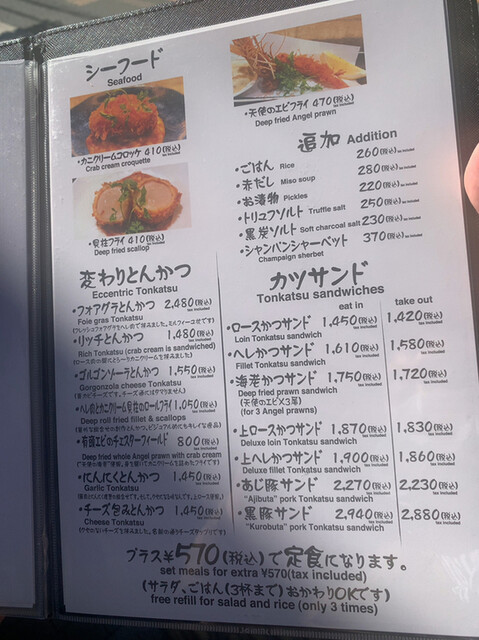 シーフード
Seafood
・カニクリームコロッケ 410(税込) tax included
Crab cream croquette
・貝柱フライ 410(税込) tax included
Deep fried scallop
・天使のエビフライ 470(税込) tax included
Deep fried Angel prawn
追加 Addition
・ごはん Rice 260(税込) tax included
・赤だし Miso soup 280(税込) tax included
・お漬物 Pickles 220(税込) tax included
・トリュフソルト Truffle salt 250(税込) tax included
・黒炭ソルト Soft charcoal salt 230(税込) tax included
・シャンパンシャーベット 370(税込) tax included
Champaign sherbet
変わりとんかつ
Eccentric Tonkatsu
・フォアグラとんかつ 2,480(税込) tax included
Foie gras Tonkatsu
・リッチとんかつ 1,480(税込) tax included
Rich Tonkatsu (crab cream is sandwiched)
・ゴルゴンゾーラとんかつ 1,550(税込) tax included
Gorgonzola cheese Tonkatsu
・ヘレのとカニクリーム貝柱のロールフライ 1,050(税込) tax included
Deep roll fried fillet & scallops
・有頭エビのチェスターフィールド 800(税込) tax included
Deep fried whole Angel prawn with crab cream
・にんにくとんかつ 1,450(税込) tax included
Garlic Tonkatsu
・チーズ包みとんかつ 1,450(税込) tax included
Cheese Tonkatsu
カツサンド
Tonkatsu sandwiches
eat in take out
・ロースかつサンド 1,450(税込) tax included 1,420(税込) tax included
Loin Tonkatsu sandwich
・ヘレかつサンド 1,610(税込) tax included 1,580(税込) tax included
Fillet Tonkatsu sandwich
・海老かつサンド 1,750(税込) tax included 1,720(税込) tax included
Deep fried prawn sandwich
(天使のエビ×3尾)
(for 3 Angel prawns)
・上ロースかつサンド 1,870(税込) tax included 1,830(税込) tax included
Deluxe loin Tonkatsu sandwich
・上ヘレかつサンド 1,900(税込) tax included 1,860(税込) tax included
Deluxe fillet Tonkatsu sandwich
・あじ豚サンド 2,270(税込) tax included 2,230(税込) tax included
"Ajibuta" pork Tonkatsu sandwich
・黒豚サンド 2,940(税込) tax included 2,880(税込) tax included
"Kurobuta" pork Tonkatsu sandwich
プラス¥570(税込)で定食になります。
set meals for extra ¥570(tax included)
(サラダ、ごはん(3杯まで)おかわりOKです)
free refill for salad and rice (only 3 times)